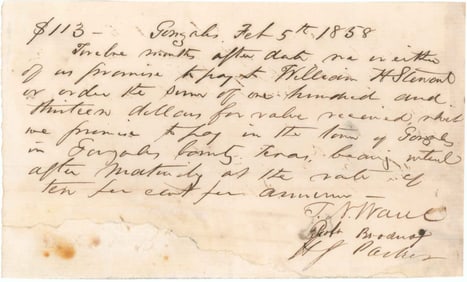 $113 – Gonzales Feb 5th 1858
Twelve months after date we or either
of us promise to pay to William H Stewart
or order the sum of one hundred and
thirteen dollars for value received which
we promise to pay in the town of Gonzales
in Gonzales County Texas, bearing interest
after maturity at the rate of
ten per cent per annum –
T. N. Waul
Robt Brodnax
H G Parker